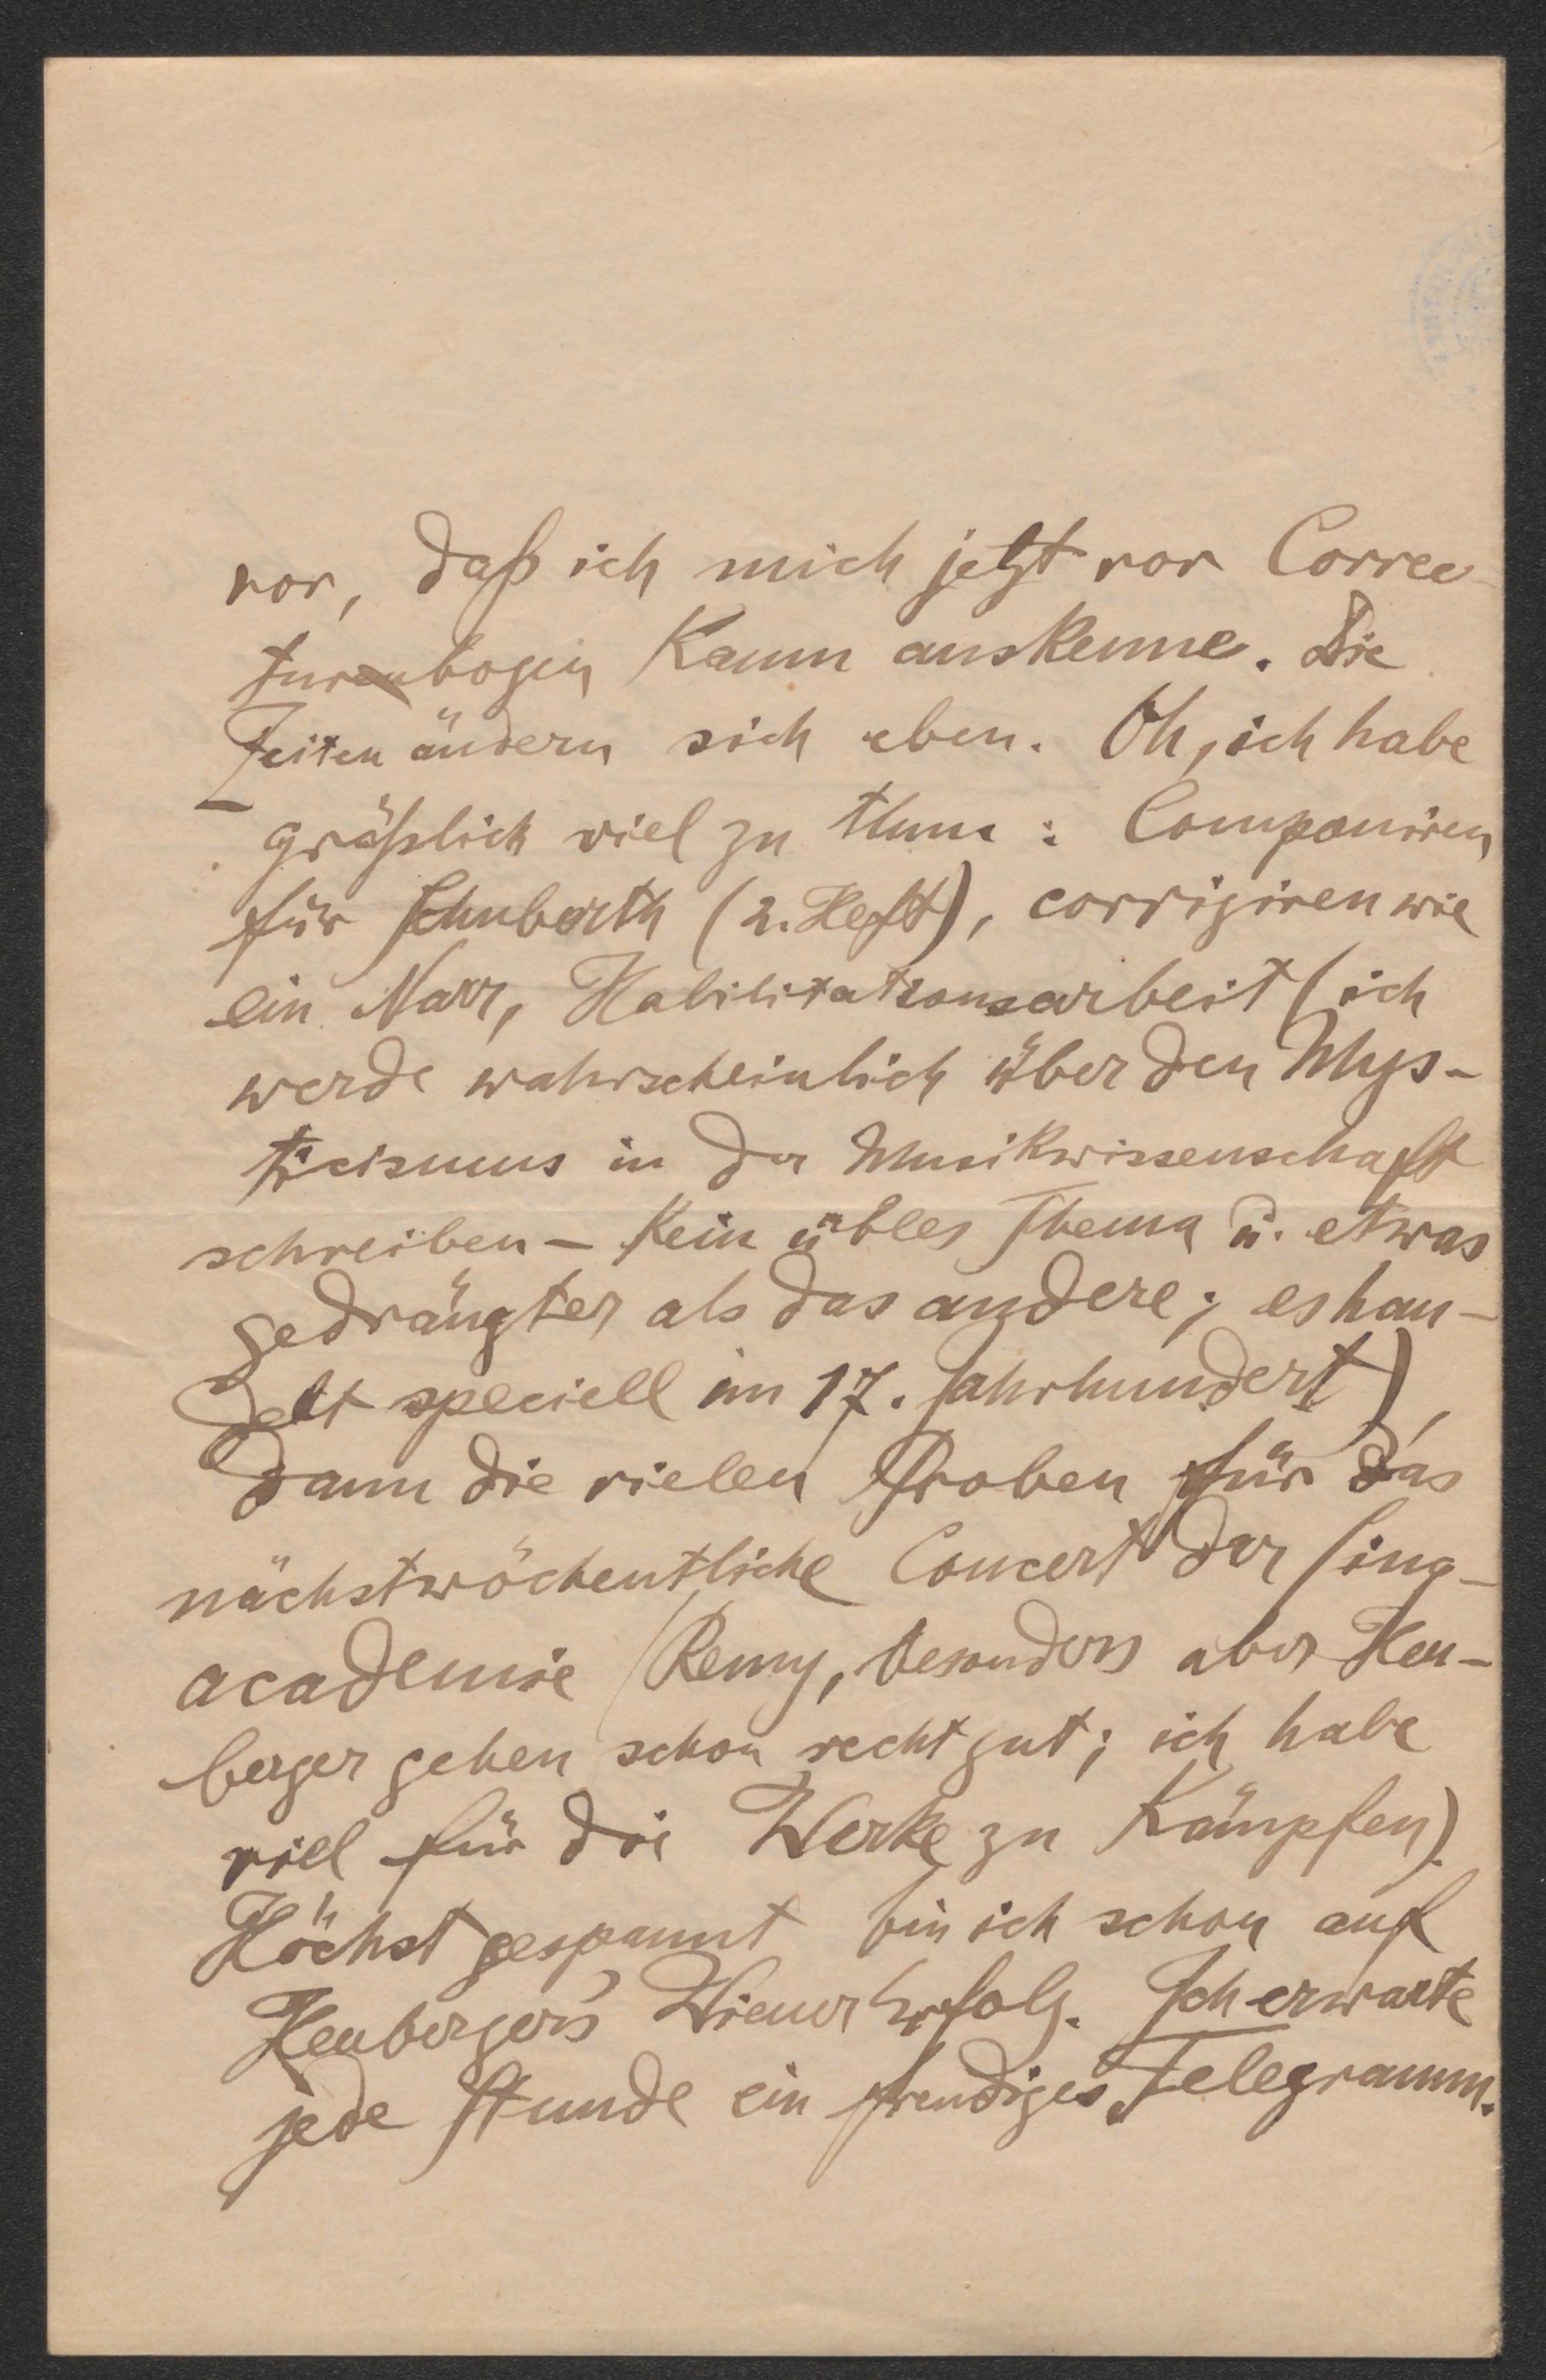 vor, daß ich mich jetzt vor Correc-
turenbogen kaum auskenne. Die
Zeiten ändern sich eben. Oh, ich habe
gräßlich viel zu thun: Componiren
für Schuberth (2. Heft), corrigiren wie
ein Narr, Habilitationsarbeit (ich
werde wahrscheinlich über den Mys-
ticismus in der Musikwissenschaft
schreiben – kein übles Thema u. etwas
gedrängter als das andere; es han-
delt speciell im 17. Jahrhundert),
dann die vielen Proben für das
nächstwöchentliche Concert der Sing-
academie (Remy, besonders aber Heu-
berger gehen schon recht gut; ich habe
viel für die Werke zu kämpfen).
Höchst gespannt bin ich schon auf
Heuberger's Wiener Erfolg. Ich erwarte
jede Stunde ein freudiges Telegramm.